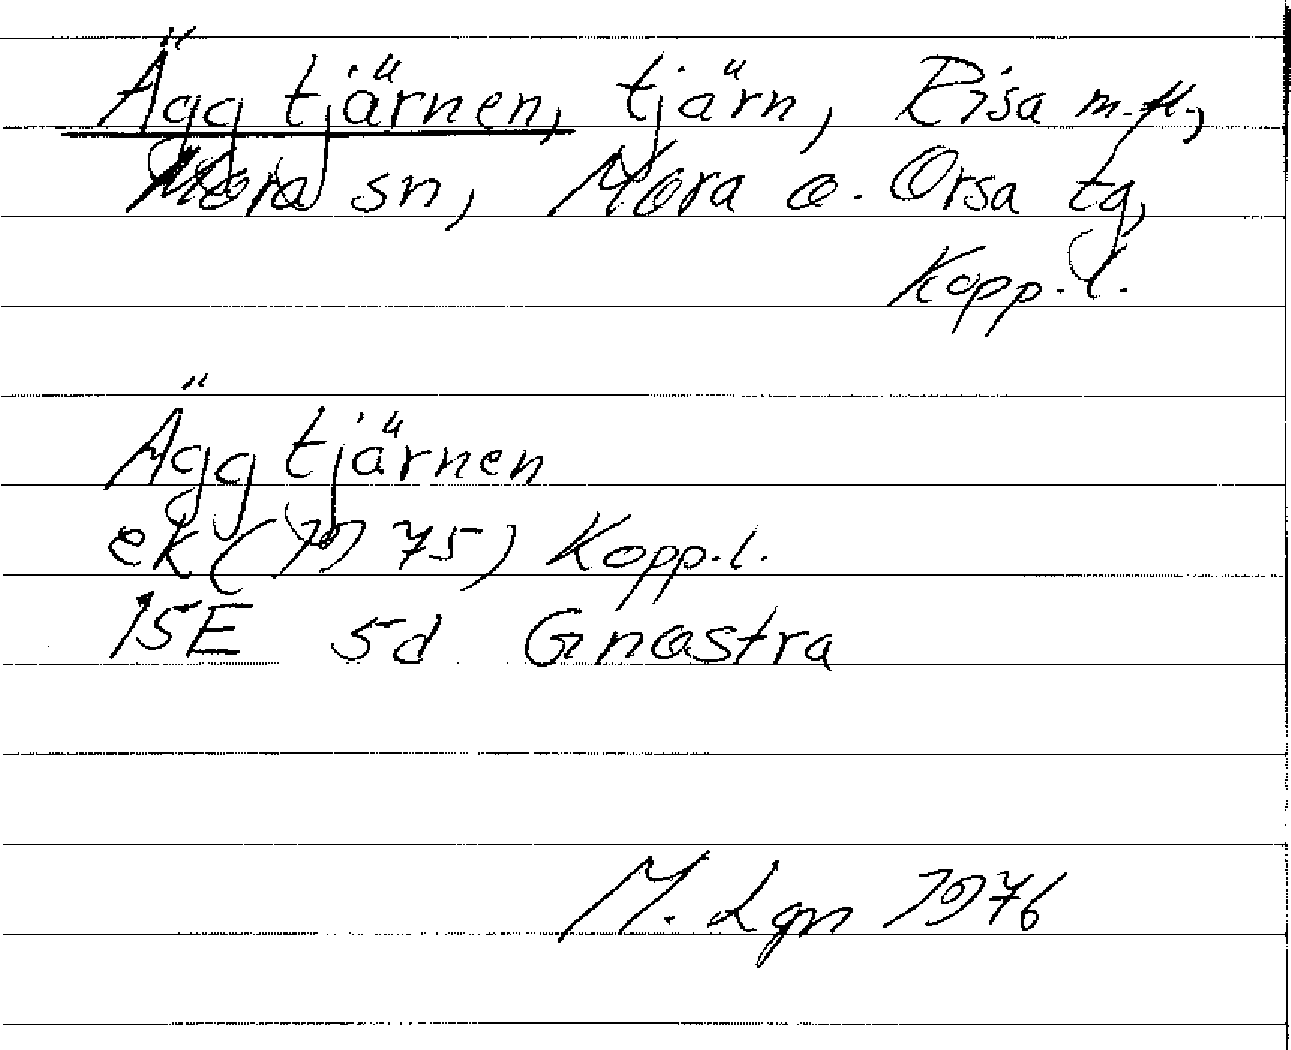 Äggtjärnen, tjärn, Risa m.fl.,
Mora sn, Mora o. Orsa tg,
Kopp.l.
Äggtjärnen
ek (1975) Kopp.l.
15E 5d Gnastra
M. Lgn 1976